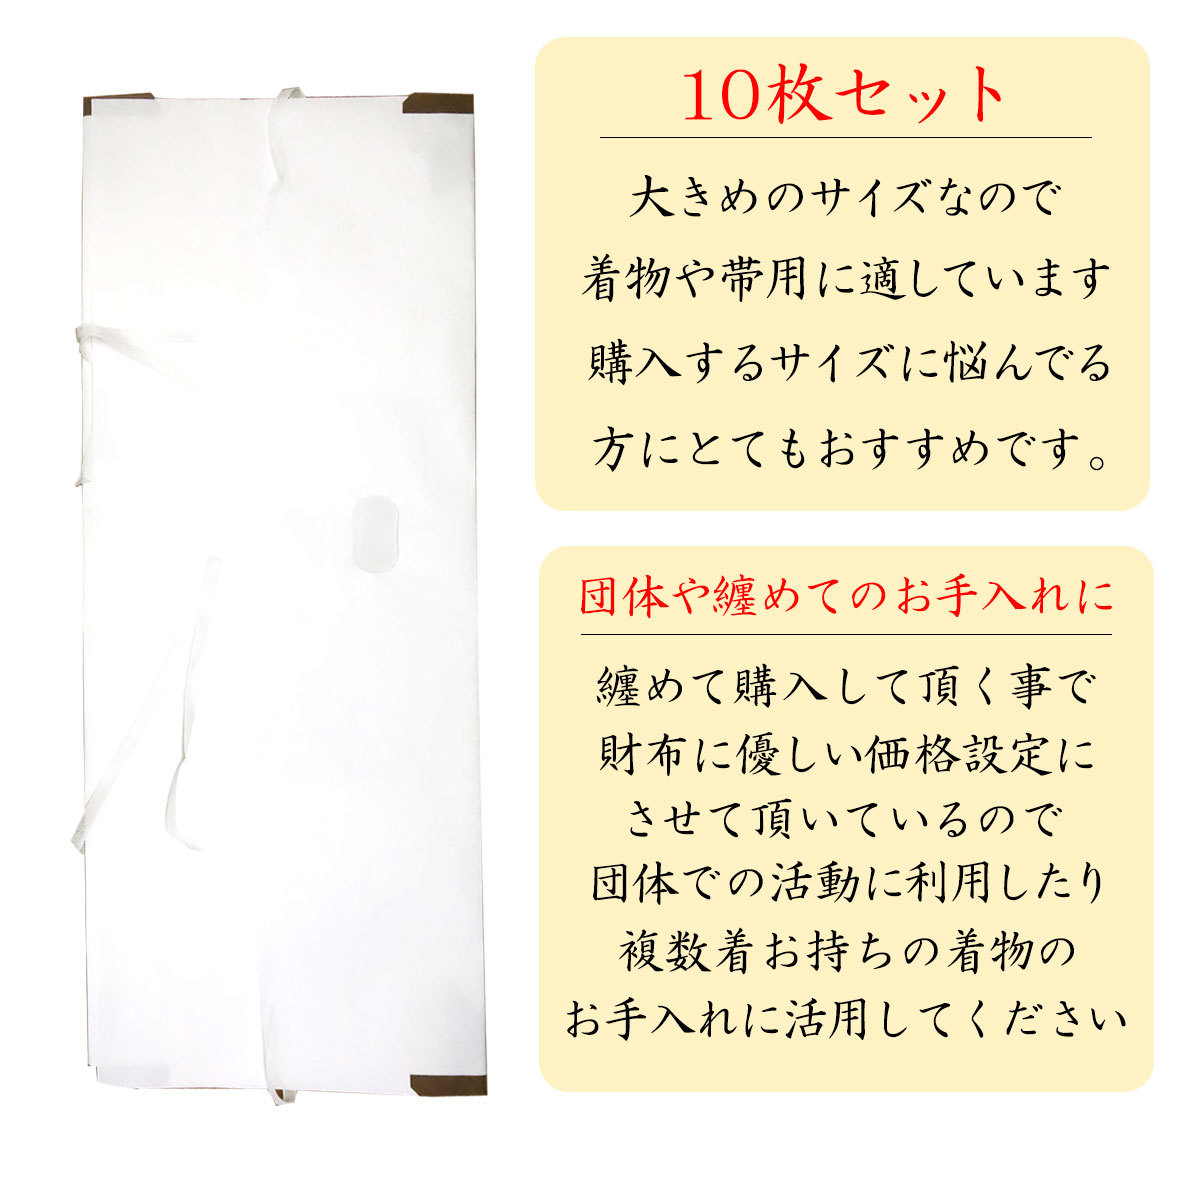 10枚セット
大きめのサイズなので
着物や帯用に適しています
購入するサイズに悩んでる
方にとてもおすすめです。
団体や纏めてのお手入れに
纏めて購入して頂く事で
財布に優しい価格設定に
させて頂いているので
団体での活動に利用したり
複数着お持ちの着物の
お手入れに活用してください